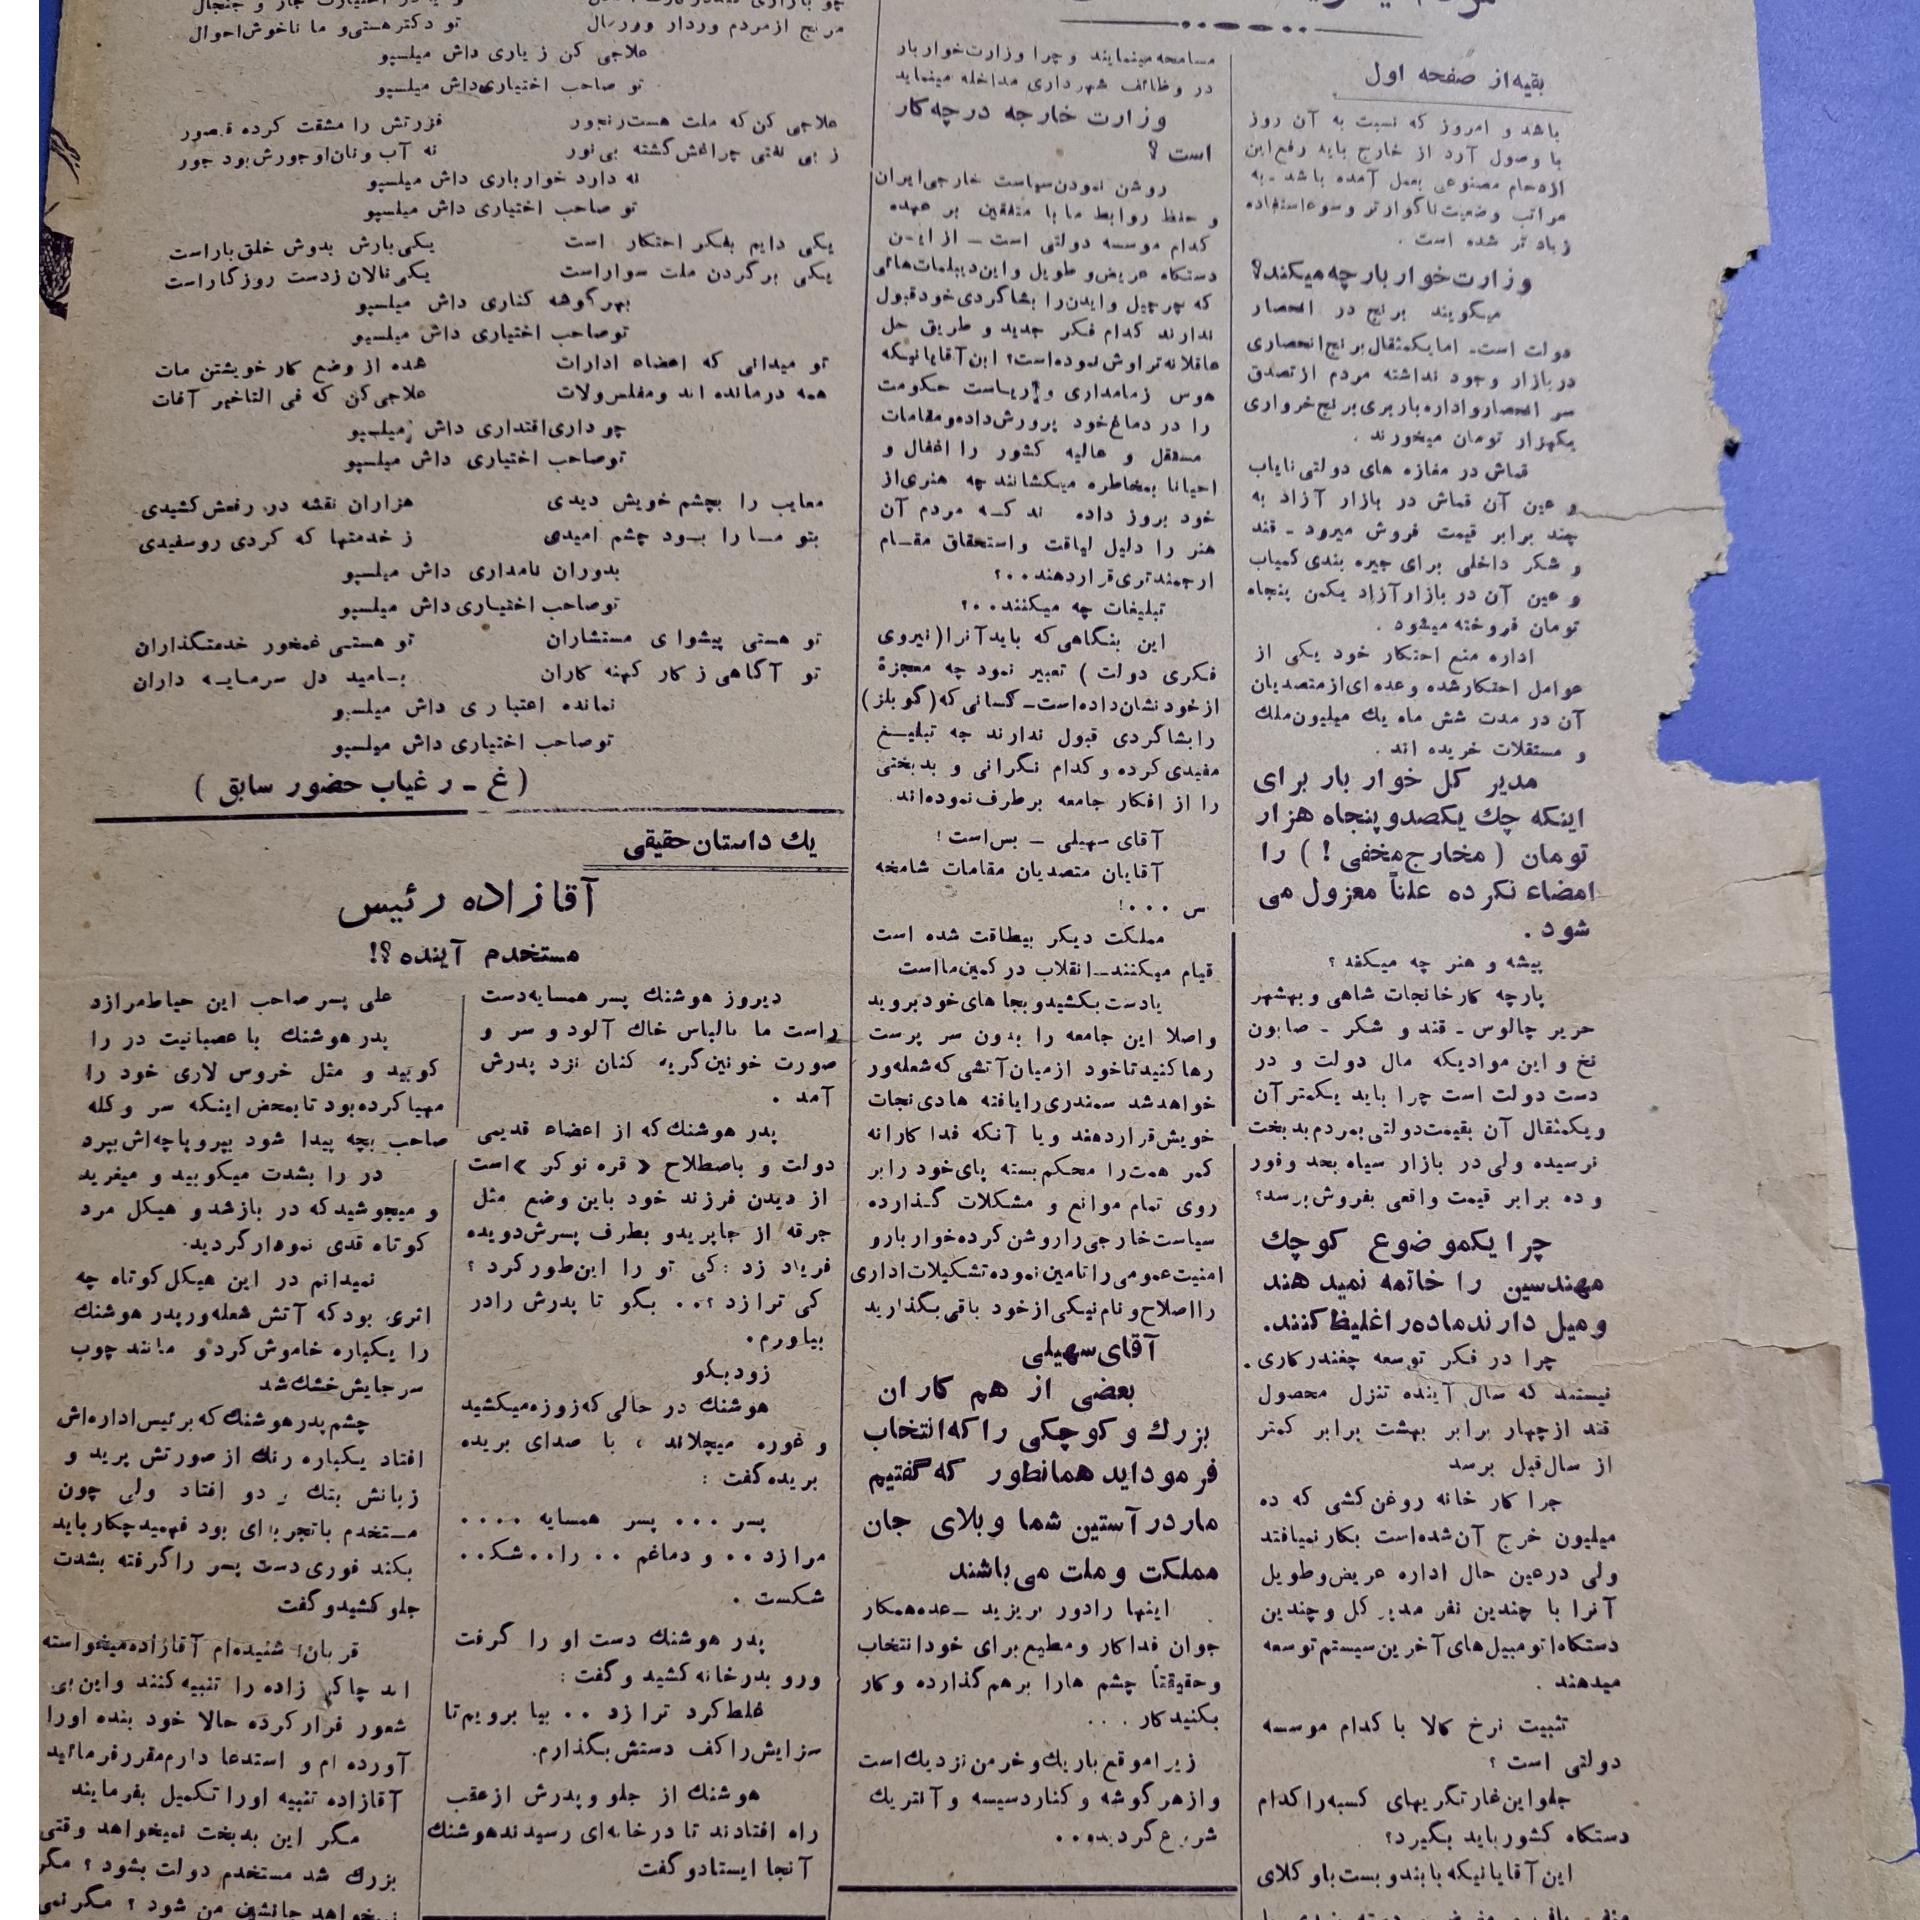 بقیه از صفحه اول
باشد و امروز که نسبت به آن روز
با وصول آرد از خارج باید رفع این
ازدحام مصنوعی بعمل آمده باشد ـ به
مراتب وضعیت ناگوارتر و سوء استفاده
زیاد تر شده است .
وزارت خوار بار چه میکند؟
میگویند برنج در انحصار
دولت است ـ اما یکمثقال برنج انحصاری
در بازار وجود نداشته مردم از تصدق
سر انحصار و اداره باربری برنج خرواری
یکهزار تومان میخورند .
قماش در مغازه های دولتی نایاب
و عین آن قماش در بازار آزاد به
چند برابر قیمت فروش میرود ـ قند
و شکر داخلی برای جیره بندی کمیاب
و عین آن در بازار آزاد یکمن پنجاه
تومان فروخته میشود .
اداره منع احتکار خود یکی از
عوامل احتکار شده و عده ای از متصدیان
آن در مدت شش ماه یك میلیون ملك
و مستقلات خریده اند .
مدیر کل خوار بار برای
اینکه چك یکصدو پنجاه هزار
تومان ( مخارج مخفی ! ) را
امضاء نکرده علناً معزول می
شود .
پیشه و هنر چه میکند ؟
پارچه کارخانجات شاهی و بهشهر
حریر چالوس ـ قند و شکر ـ صابون
نخ و این موادیکه مال دولت و در
دست دولت است چرا باید یکمتر آن
و یکمثقال آن بقیمت دولتی بمردم بدبخت
نرسیده ولی در بازار سیاه بحد وفور
و ده برابر قیمت واقعی بفروش برسد؟
چرا یکموضوع کوچك
مهندسین را خاتمه نمیدهند
و میل دارند ماده را غلیظ کنند.
چرا در فکر توسعه چغندر کاری
نیستند که سال آینده تنزل محصول
قند از چهار برابر بهشت برابر کمتر
از سال قبل برسد
چرا کار خانه روغن کشی که ده
میلیون خرج آن شده است بکار نمیافتد
ولی در عین حال اداره عریض و طویل
آنرا با چندین نفر مدیر کل و چندین
دستگاه اتومبیل های آخرین سیستم توسعه
میدهند .
تثبیت نرخ کالا با کدام موسسه
دولتی است ؟
جلو این غارتگریهای کسبه را کدام
دستگاه کشور باید بگیرد؟
این آقایانیکه با بند و بست با وکلای
مسامحه مینمایند و چرا وزارت خواربار
در وظائف شهرداری مداخله مینماید
وزارت خارجه در چه کار
است ؟
روشن نمودن سیاست خارجی ایران
و حفظ روابط ما با متفقین بر عهده
کدام موسسه دولتی است ـ از این
دستگاه عریض و طویل و این دیپلماتهائی
که چرچیل وایدن را بشاگردی خود قبول
ندارند کدام فکر جدید و طریق حل
عاقلانه تراوش نموده است؟ این آقایانیکه
هوس زمامداری و ریاست حکومت
را در دماغ خود پرورش داده و مقامات
مستقل و عالیه کشور را اغفال و
احیانا بمخاطره میکشانند چه هنری از
خود بروز داده ند که مردم آن
هنر را دلیل لیاقت و استحقاق مقام
ارجمندتری قرار دهند..؟
تبلیغات چه میکنند..؟
این بنگاهی که باید آنرا (نیروی
فکری دولت ) تعبیر نمود چه معجزة
از خود نشان داده است ـ کسانی که (گوبلز)
را بشاگردی قبول ندارند چه تبلیغ
مفیدی کرده و کدام نگرانی و بدبختی
را از افکار جامعه برطرف نموده اند.
آقای سهیلی ـ بس است !
آقایان متصدیان مقامات شامخه
س ...!
مملکت دیگر بیطاقت شده است
قیام میکنند ـ انقلاب در کمین ما است
یا دست بکشید و بجا های خود بروید
و اصلا این جامعه را بدون سر پرست
رها کنید تا خود از میان آتشی که شعله ور
خواهد شد سمندری را یافته هادی نجات
خویش قرار دهند و یا آنکه فدا کارانه
کمر همت را محکم بسته پای خود را بر
روی تمام موانع و مشکلات گذارده
سیاست خارجی را روشن کرده خوار بار و
امنیت عمومی را تامین نموده تشکیلات اداری
را اصلاح و نام نیکی از خود باقی بگذارید
آقای سهیلی
بعضی از هم کاران
بزرك و کوچکی را که انتخاب
فرموداید همانطور که گفتیم
مار در آستین شما و بلای جان
مملکت و ملت می باشند
اینها را دور بریزید ـ عده همکار
جوان فدا کار و مطیع برای خود انتخاب
و حقیقتاً چشم ها را بر هم گذارده و کار
بکنید کار ...
زیرا موقع باریك و خرمن نزدیك است
و از هر گوشه و کنار دسیسه و آنتریك
شروع گردیده..
مرنج از مردم وردار وورمال
تو دکتر هستی و ما ناخوش احوال
علاجی کن ز یاری داش میلسپو
تو صاحب اختیاری داش میلسپو
علاجی کن که ملت هست رنجور
فزرتش را مشقت کرده قمصور
ز بی نفتی چراغش گشته بی نور
نه آب و نان او جورش بود جور
نه دارد خوارباری داش میلسپو
تو صاحب اختیاری داش میلسپو
یکی دایم بفکر احتکار است
یکی بارش بدوش خلق بار است
یکی بر گردن ملت سوار است
یکی نالان زدست روزگار است
بهر گوشه کناری داش میلسپو
تو صاحب اختیاری داش میلسپو
تو میدانی که اعضاء ادارات
شده از وضع کار خویشتن مات
همه در مانده اند و مفلس ولات
علاجی کن که فی التاخیر آفات
چو داری اقتداری داش میلسپو
تو صاحب اختیاری داش میلسپو
معایب را بچشم خویش دیدی
هزاران نقشه در رفعش کشیدی
بتو ما را بود چشم امیدی
ز خدمتها که کردی رو سفیدی
بدوران نامداری داش میلسپو
تو صاحب اختیاری داش میلسپو
تو هستی پیشوای مستشاران
تو هستی غمخور خدمتگذاران
تو آگاهی ز کار کهنه کاران
بامید دل سرمایه داران
نمانده اعتباری داش میلسپو
تو صاحب اختیاری داش میلسپو
( غ ـ ر غیاب حضور سابق )
یك داستان حقیقی
آقازاده رئیس
مستخدم آینده ؟!
دیروز هوشنك پسر همسایه دست
راست ما با لباس خاك آلود و سر و
صورت خونین گریه کنان نزد پدرش
آمد .
پدر هوشنك که از اعضاء قدیمی
دولت و باصطلاح « قره نوکر » است
از دیدن فرزند خود باین وضع مثل
جرقه از جا پریدو بطرف پسرش دویده
فریاد زد : کی تو را این طور کرد ؟
کی ترا زد ؟.. بگو تا پدرش را در
بیاورم.
زود بگو
هوشنك در حالی که زوزه میکشید
و غوره میچلاند ، با صدای بریده
بریده گفت :
پسر ... پسر همسایه ....
مرا زد .. و دماغم .. را .. شک..
شکست .
پدر هوشنك دست او را گرفت
ورو بدر خانه کشید و گفت :
غلط کرد ترا زد .. بیا برویم تا
سزایش را کف دستش بگذارم.
هوشنك از جلو و پدرش از عقب
راه افتادند تا در خانه ای رسیدند هوشنك
آنجا ایستاد و گفت
علی پسر صاحب این حیاط مرا زد
پدر هوشنك با عصبانیت در را
کوبید و مثل خروس لاری خود را
مهیا کرده بود تا بمحض اینکه سر و کله
صاحب بچه پیدا شود بپر و پاچه اش بپرد
در را بشدت میکوبید و میغرید
و میجوشید که در باز شد و هیکل مرد
کوتاه قدی نمودار گردید.
نمیدانم در این هیکل کوتاه چه
اثری بود که آتش شعله ور پدر هوشنك
را یکباره خاموش کرد و مانند چوب
سر جایش خشك شد
چشم پدر هوشنك که برئیس اداره اش
افتاد یکباره رنك از صورتش پرید و
زبانش بتك و دو افتاد ولی چون
مستخدم با تجربه ای بود فهمید چکار باید
بکند فوری دست پسر را گرفته بشدت
جلو کشید و گفت
قربان! شنیده ام آقازاده میخواسته
اند چاکر زاده را تنبیه کنند و این بی
شعور فرار کرده حالا خود بنده او را
آورده ام و استدعا دارم مقرر فرمائید
آقازاده تنبیه او را تکمیل بفرمایند
مگر این بدبخت نمیخواهد وقتی
بزرك شد مستخدم دولت بشود ؟ مگر
نمیخواهد جانشین من شود ؟ مگر نمی